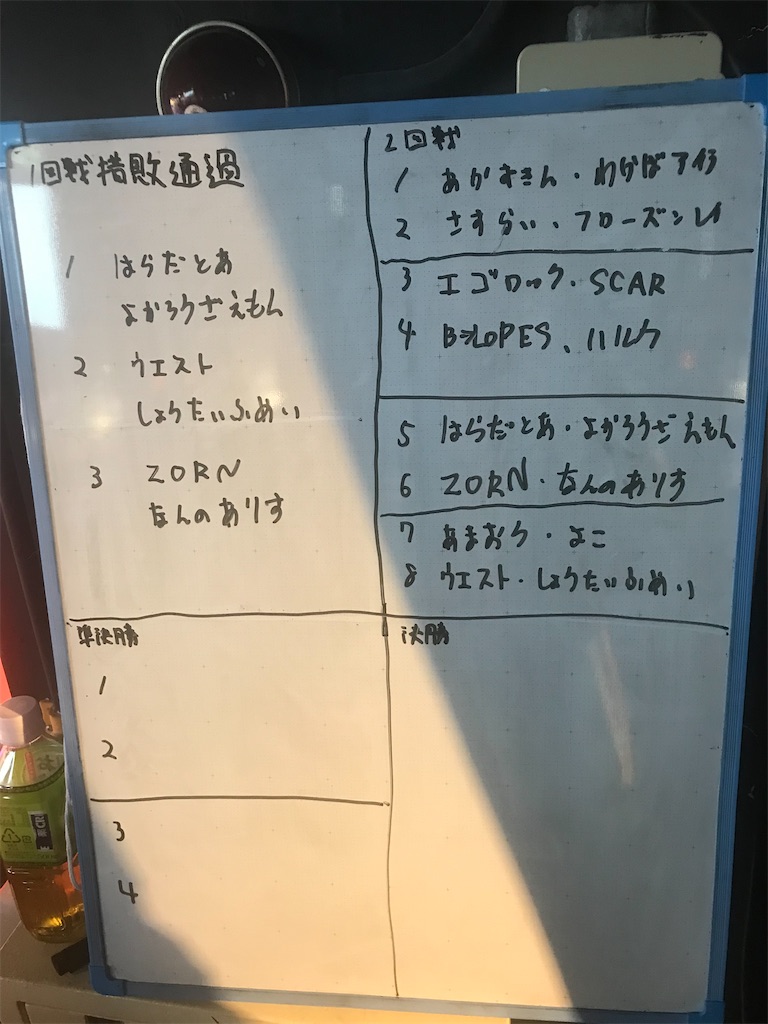 1回戦惜敗通過
1 はらだとあ
よかろうざえもん
2 ウエスト
しょうたいふめい
3 ZORN
なんのありす
2回戦
1 あかずきん・わかば
2 さすらい、フローズンレイ
3 エゴロック・SCAR
4 B=LOPES、ハルク
5 はらだとあ・よかろうざえもん
6 ZORN・なんのありす
7 あまおう・よこ
8 ウエスト・しょうたいふめい
準決勝
1
2
3
4
決勝